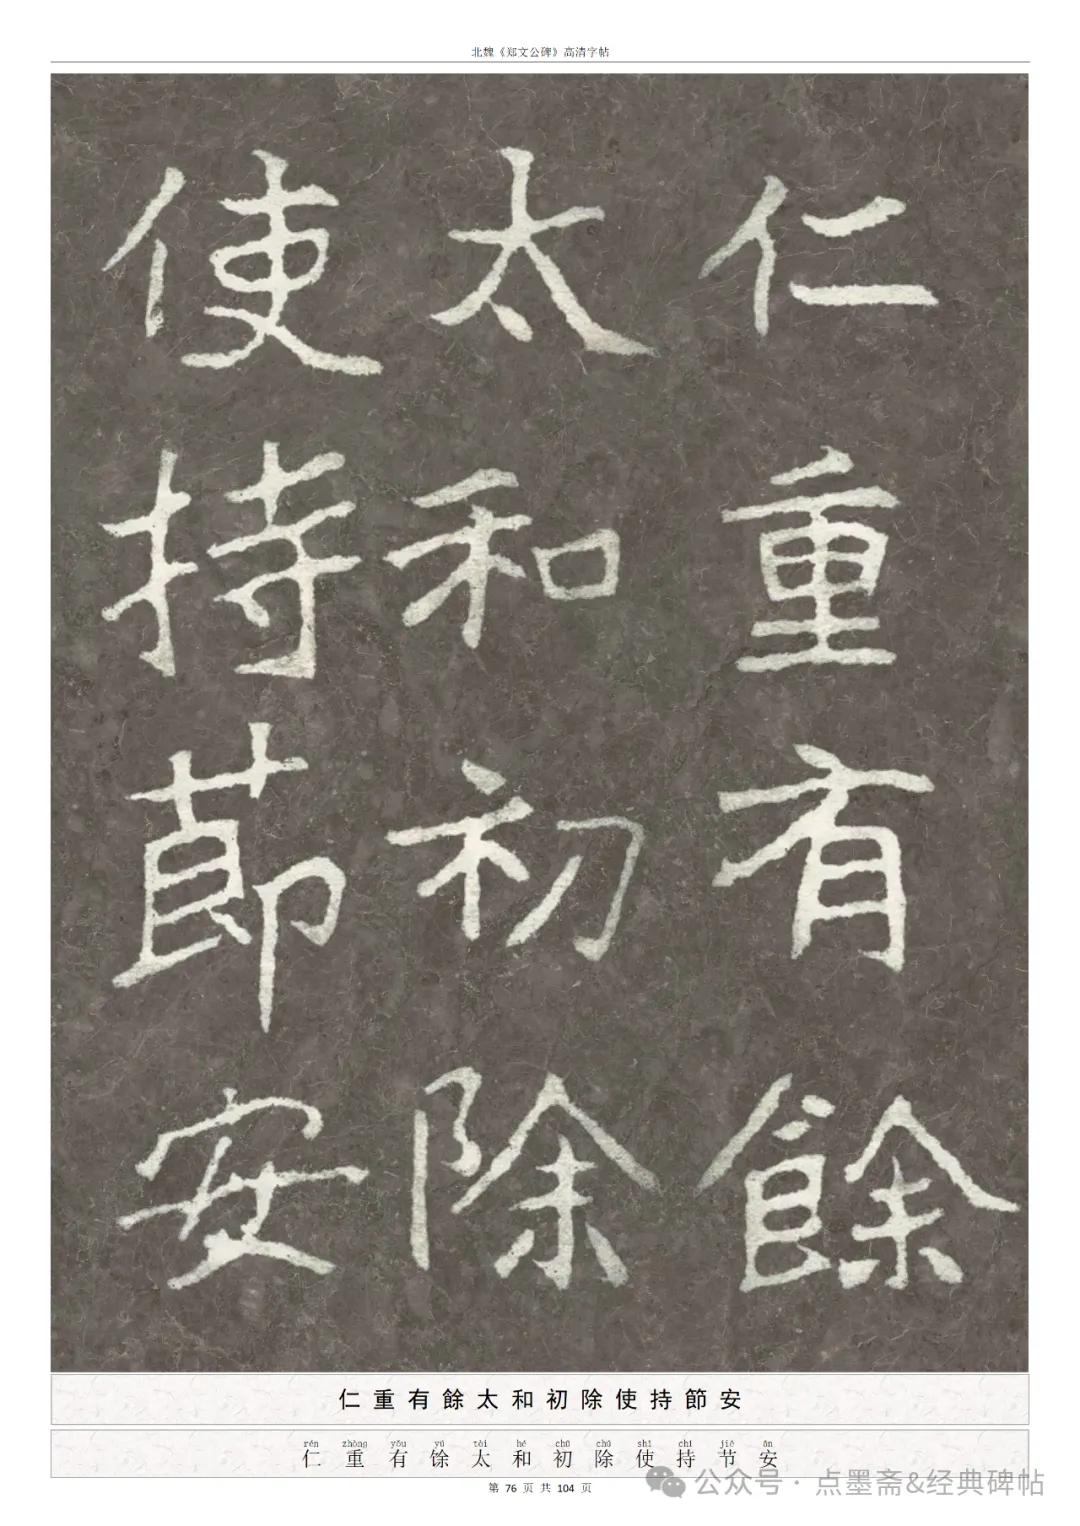 北魏《郑文公碑》高清字帖
仁重有餘
太和初除
使持節安
仁重有餘太和初除使持節安
rén zhòng yǒu yú tài hé chū chú shǐ chí jié ān
仁重有馀太和初除使持节安
第 76 页 共 104 页
公众号 · 点墨斋&经典碑帖